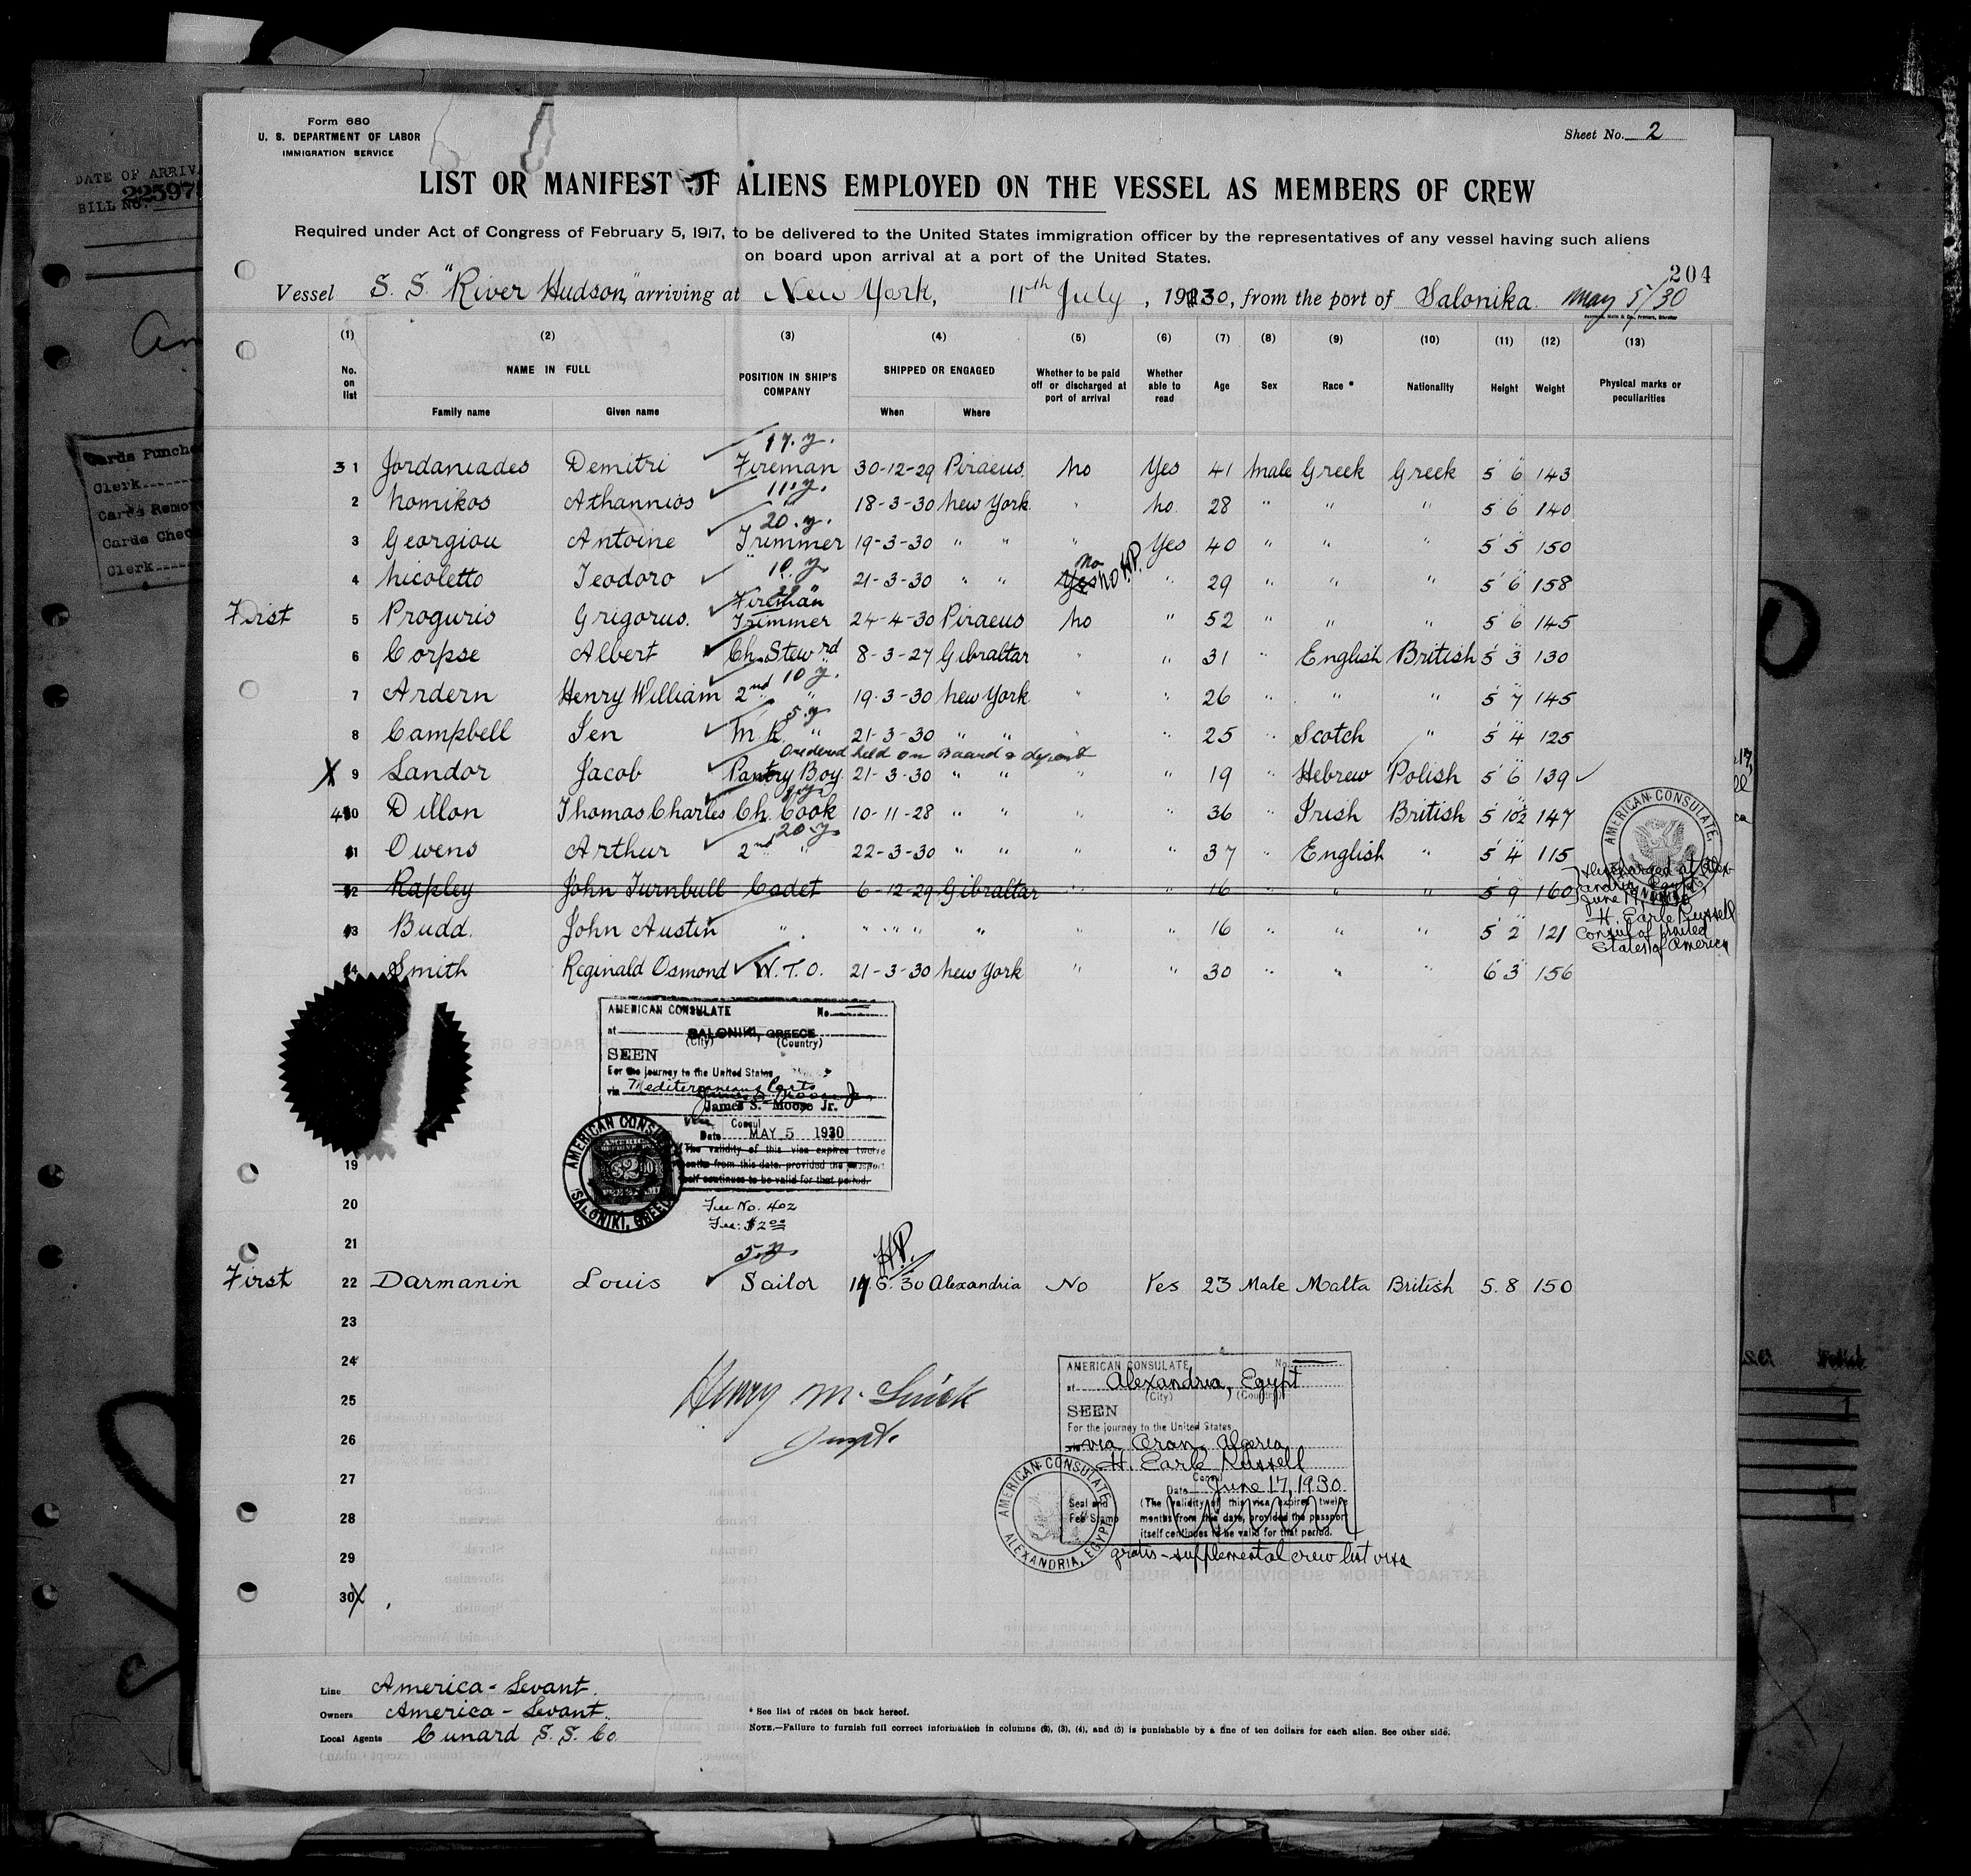 Form 680
U. S. DEPARTMENT OF LABOR
IMMIGRATION SERVICE
Sheet No. 2
DATE OF ARRIV
BILL No.
LIST OR MANIFEST OF ALIENS EMPLOYED ON THE VESSEL AS MEMBERS OF CREW
Required under Act of Congress of February 5, 1917, to be delivered to the United States immigration officer by the representatives of any vessel having such aliens
on board upon arrival at a port of the United States.
204
Vessel S. S. "River Hudson," arriving at New York, 11th July, 1930, from the port of Salonika. May 5/30
(1) (2) (3) (4) (5) (6) (7) (8) (9) (10) (11) (12) (13)
No. on list NAME IN FULL POSITION IN SHIP'S COMPANY SHIPPED OR ENGAGED Whether to be paid off or discharged at port of arrival Whether able to read Age Sex Race * Nationality Height Weight Physical marks or peculiarities
Family name Given name When Where
17. y.
31 Jordaniades Demitri Fireman 30-12-29 Piraeus. No Yes 41 Male Greek Greek 5 6 143
11. y.
2 Nomikos Athannios " 18-3-30 New York. " No. 28 " " " 5 6 140
20. y.
3 Georgiou Antoine Trimmer 19-3-30 " " " Yes 40 " " " 5 5 150
10. y No
4 Nicoletto Teodoro " 21-3-30 " " Yes NO H.P. " 29 " " " 5 6 158
Fireman
First 5 Proguris Grigorus. Trimmer 24-4-30 Piraeus No " 52 " " " 5 6 145
6 Corpse Albert Ch. Stewrd 8-3-27 Gibraltar " " 31 " English British 5 3 130
10 y.
7 Ardern Henry William 2nd " 19-3-30 New York " " 26 " " " 5 7 145
5. y
8 Campbell Ien M. R. " 21-3-30 " " " " 25 " Scotch " 5 4 125
Ordered held on Board & deport
X 9 Landor Jacob Pantry Boy. 21-3-30 " " " " 19 " Hebrew Polish 5 6 139
40 Dillon Thomas Charles Ch. Cook 10-11-28 " " " " 36 " Irish British 5 10½ 147
20 y.
11 Owens Arthur 2nd " 22-3-30 " " " " 37 " English " 5 4 115
12 Rapley John Turnbull Cadet 6-12-29 Gibraltar " " 16 " " " 5 9 160
13 Budd. John Austin " " " " " " " 16 " " " 5 2 121
14 Smith Reginald Osmond W. T. O. 21-3-30 New York " " 30 " " " 6 3 156
AMERICAN CONSULATE
Discharged at Alex-
andria Egypt,
June 17, 1930
H. Earle Russell
Consul of United
States of America
AMERICAN CONSULATE No.
at SALONIKI, GREECE
(City) (Country)
SEEN
For the journey to the United States
via Mediterranean Ports
James S. Moose Jr.
James S. Moose Jr.
Vice Consul
Date MAY 5 1930
The validity of this visa expires twelve
months from this date, provided the passport
itself continues to be valid for that period.
AMERICAN CONSULATE
SALONIKI, GREECE
$2
Fee No. 402
Fee: $2.00
19
20
21
5. y. H.P.
First 22 Darmanin Louis Sailor 17. 6. 30 Alexandria No Yes 23 Male Malta British 5. 8 150
23
24
25
26
27
28
29
30
Henry M.
AMERICAN CONSULATE No.
at Alexandria, Egypt
(City) (Country)
SEEN
For the journey to the United States
via Oran, Algeria
H. Earle Russell
Consul
Date June 17, 1930
Seal and
Fee Stamp
(The validity of this visa expires twelve
months from this date, provided the passport
itself continues to be valid for that period.
AMERICAN CONSULATE
ALEXANDRIA, EGYPT
gratis - supplemental crew list visa
Line America-Levant.
Owners America-Levant.
Local Agents Cunard S. S. Co.
* See list of races on back hereof.
NOTE.—Failure to furnish full correct information in columns (2), (3), (4), and (5) is punishable by a fine of ten dollars for each alien. See other side.
Cards Punche
Clerk
Cards Remo
Cards Chec
Clerk